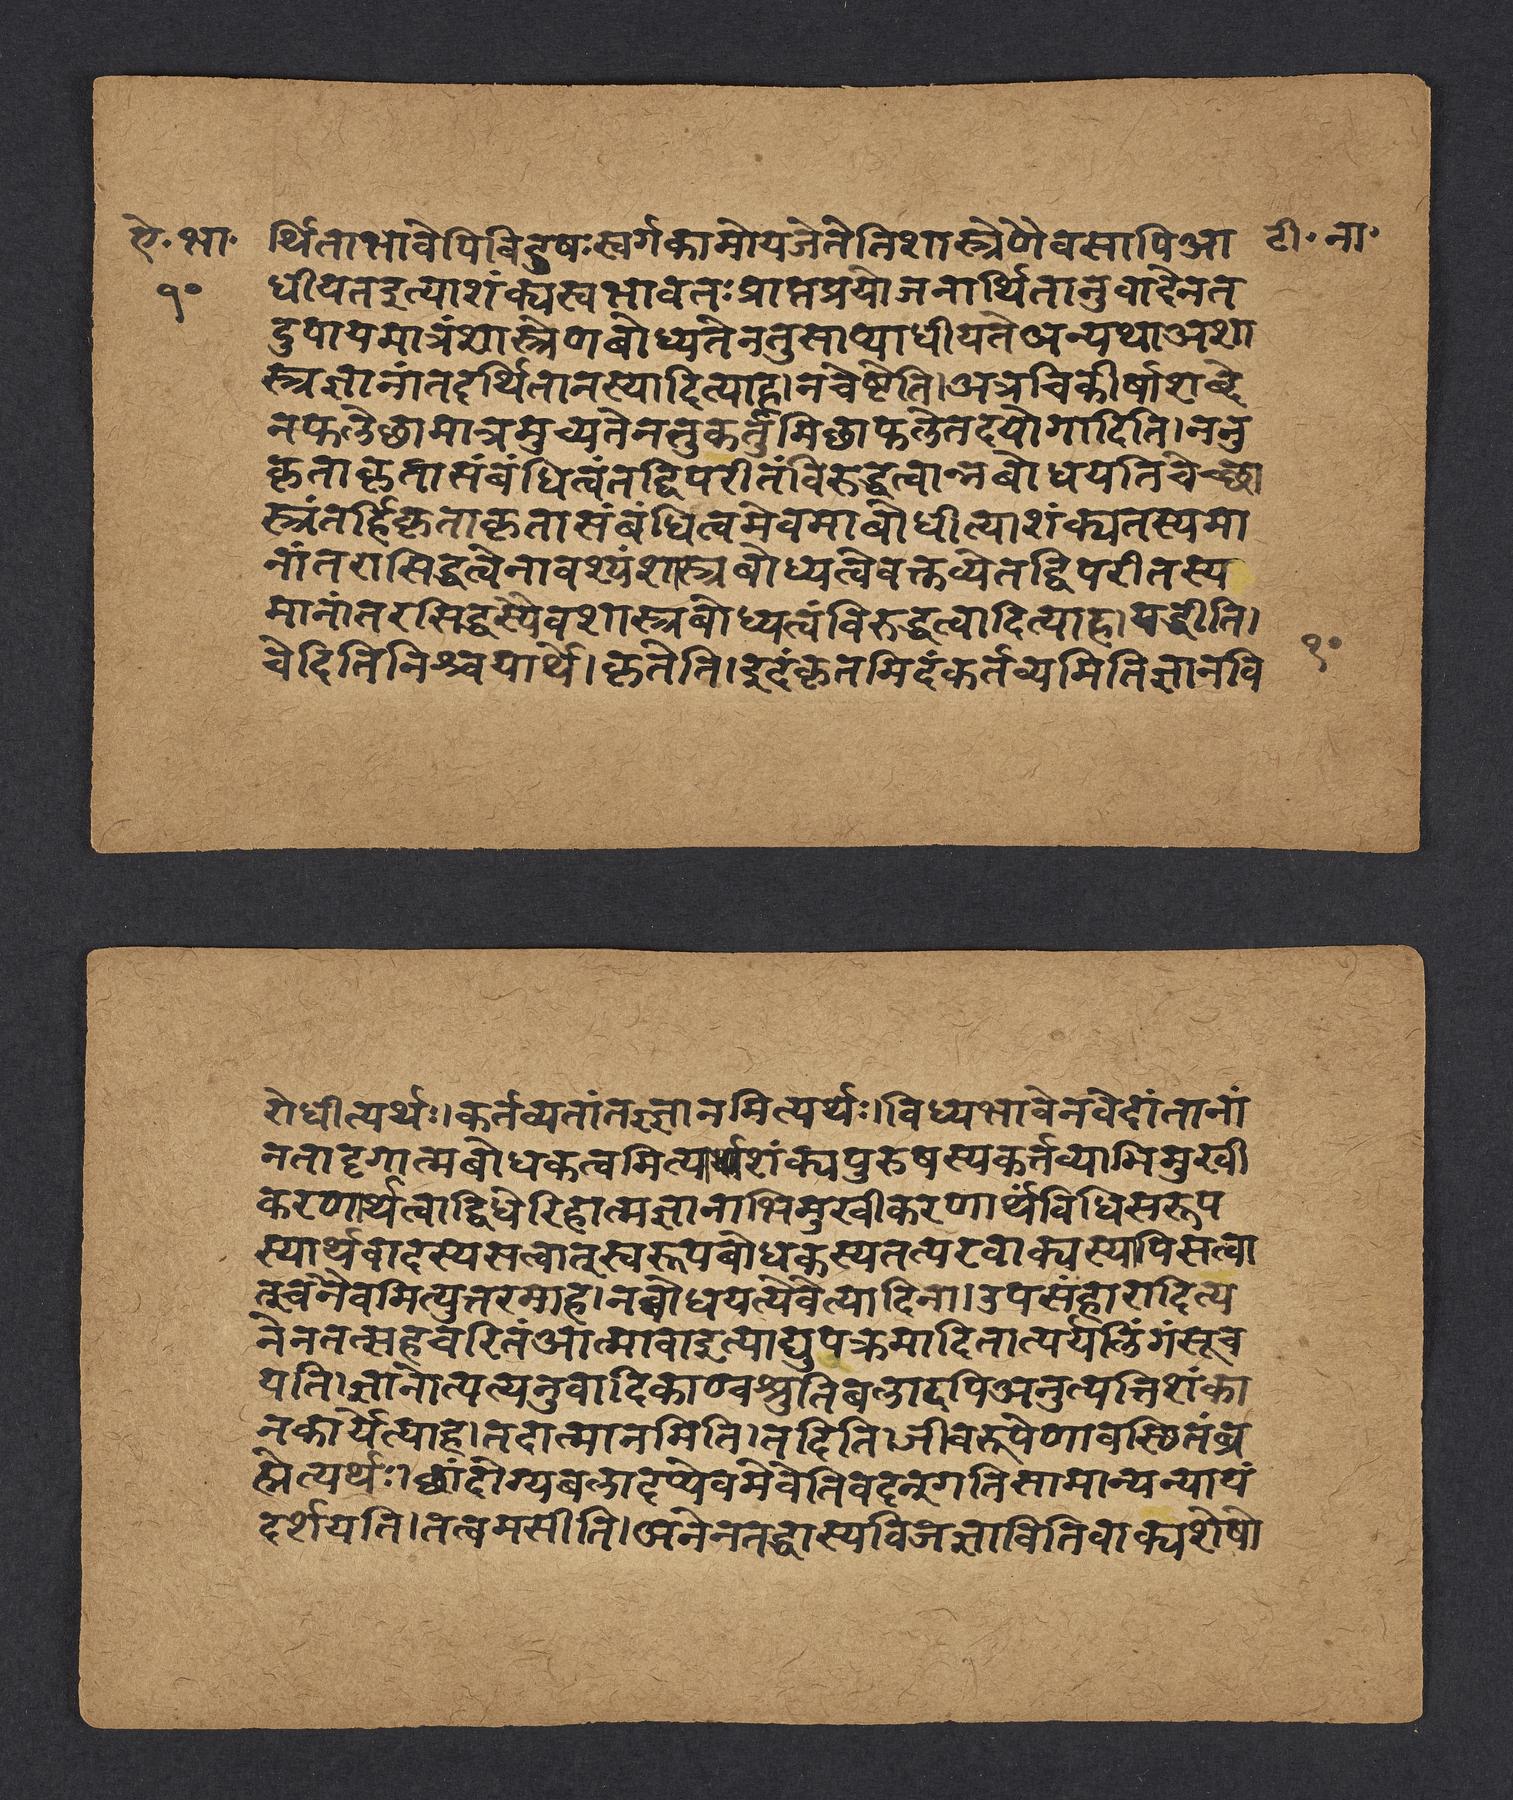 ऐ·भा· र्थिताभावेपिविदुषःस्वर्गकामोयजेतेतिशास्त्रेणैवसापिआ टी·ना·
१० धीयतइत्याशंक्यस्वभावतःप्राप्तप्रयोजनार्थितानुवादेनत
दुपायमात्रंशास्त्रेणबोध्यतेनतुसाप्याधीयतेअन्यथाअशा
स्त्रज्ञानांतदर्थितानस्यादित्याह।नचेष्टेति।अत्रचिकीर्षाशब्दे
नफलेछामात्रमुच्यतेनतुकर्तुमिछाफलेतदयोगादिति।ननु
कृताकृतासंबंधित्वंतद्विपरीतंविरुद्धत्वान्नबोधयतिचेच्छा
स्त्रंतर्हिकृताकृतासंबंधित्वमेवमाबोधीत्याशंक्यतस्यमा
नांतरासिद्धत्वेनावश्यंशास्त्रबोध्यत्वेवक्तव्येतद्विपरीतस्य
मानांतरसिद्धस्यैवशास्त्रबोध्यत्वंविरुद्धत्वादित्याह।यद्धीति।
चेदितिनिश्चयार्थे।कृतेति।इदंकृतमिदंकर्तव्यमितिज्ञानवि १०
रोधीत्यर्थः।कर्तव्यतांतज्ज्ञानमित्यर्थः।विध्यभावेनवेदांतानां
नतादृगात्मबोधकत्वमित्याशंक्यपुरुषस्यकर्त्तव्याभिमुखी
करणार्थत्वाद्विधेरिहात्मज्ञानाभिमुखीकरणार्थंविधिसरूप
स्यार्थवादस्यसत्वात्स्वरूपबोधकस्यतत्परवाक्यस्यापिसत्वा
त्नूवंनैवमित्युत्तरमाह।नबोधयत्येवेत्यादिना।उपसंहारादित्य
नेनतत्सहचरितंआत्मावाइत्याद्युपक्रमादितात्पर्यलिंगंसूच
यति।ज्ञानोत्पत्यनुवादिकाण्वश्रुतिबलादपिअनुत्पत्तिशंका
नकार्येत्याह।तदात्मानमिति।तदिति।जीवरूपेणावस्थितंब्र
ह्मेत्यर्थः।छांदोग्यबलादप्येवमेवेतिवदन्गतिसामान्यन्यायं
दर्शयति।तत्वमसीति।अनेनतद्धास्यविजज्ञावितिवाक्यशेषो